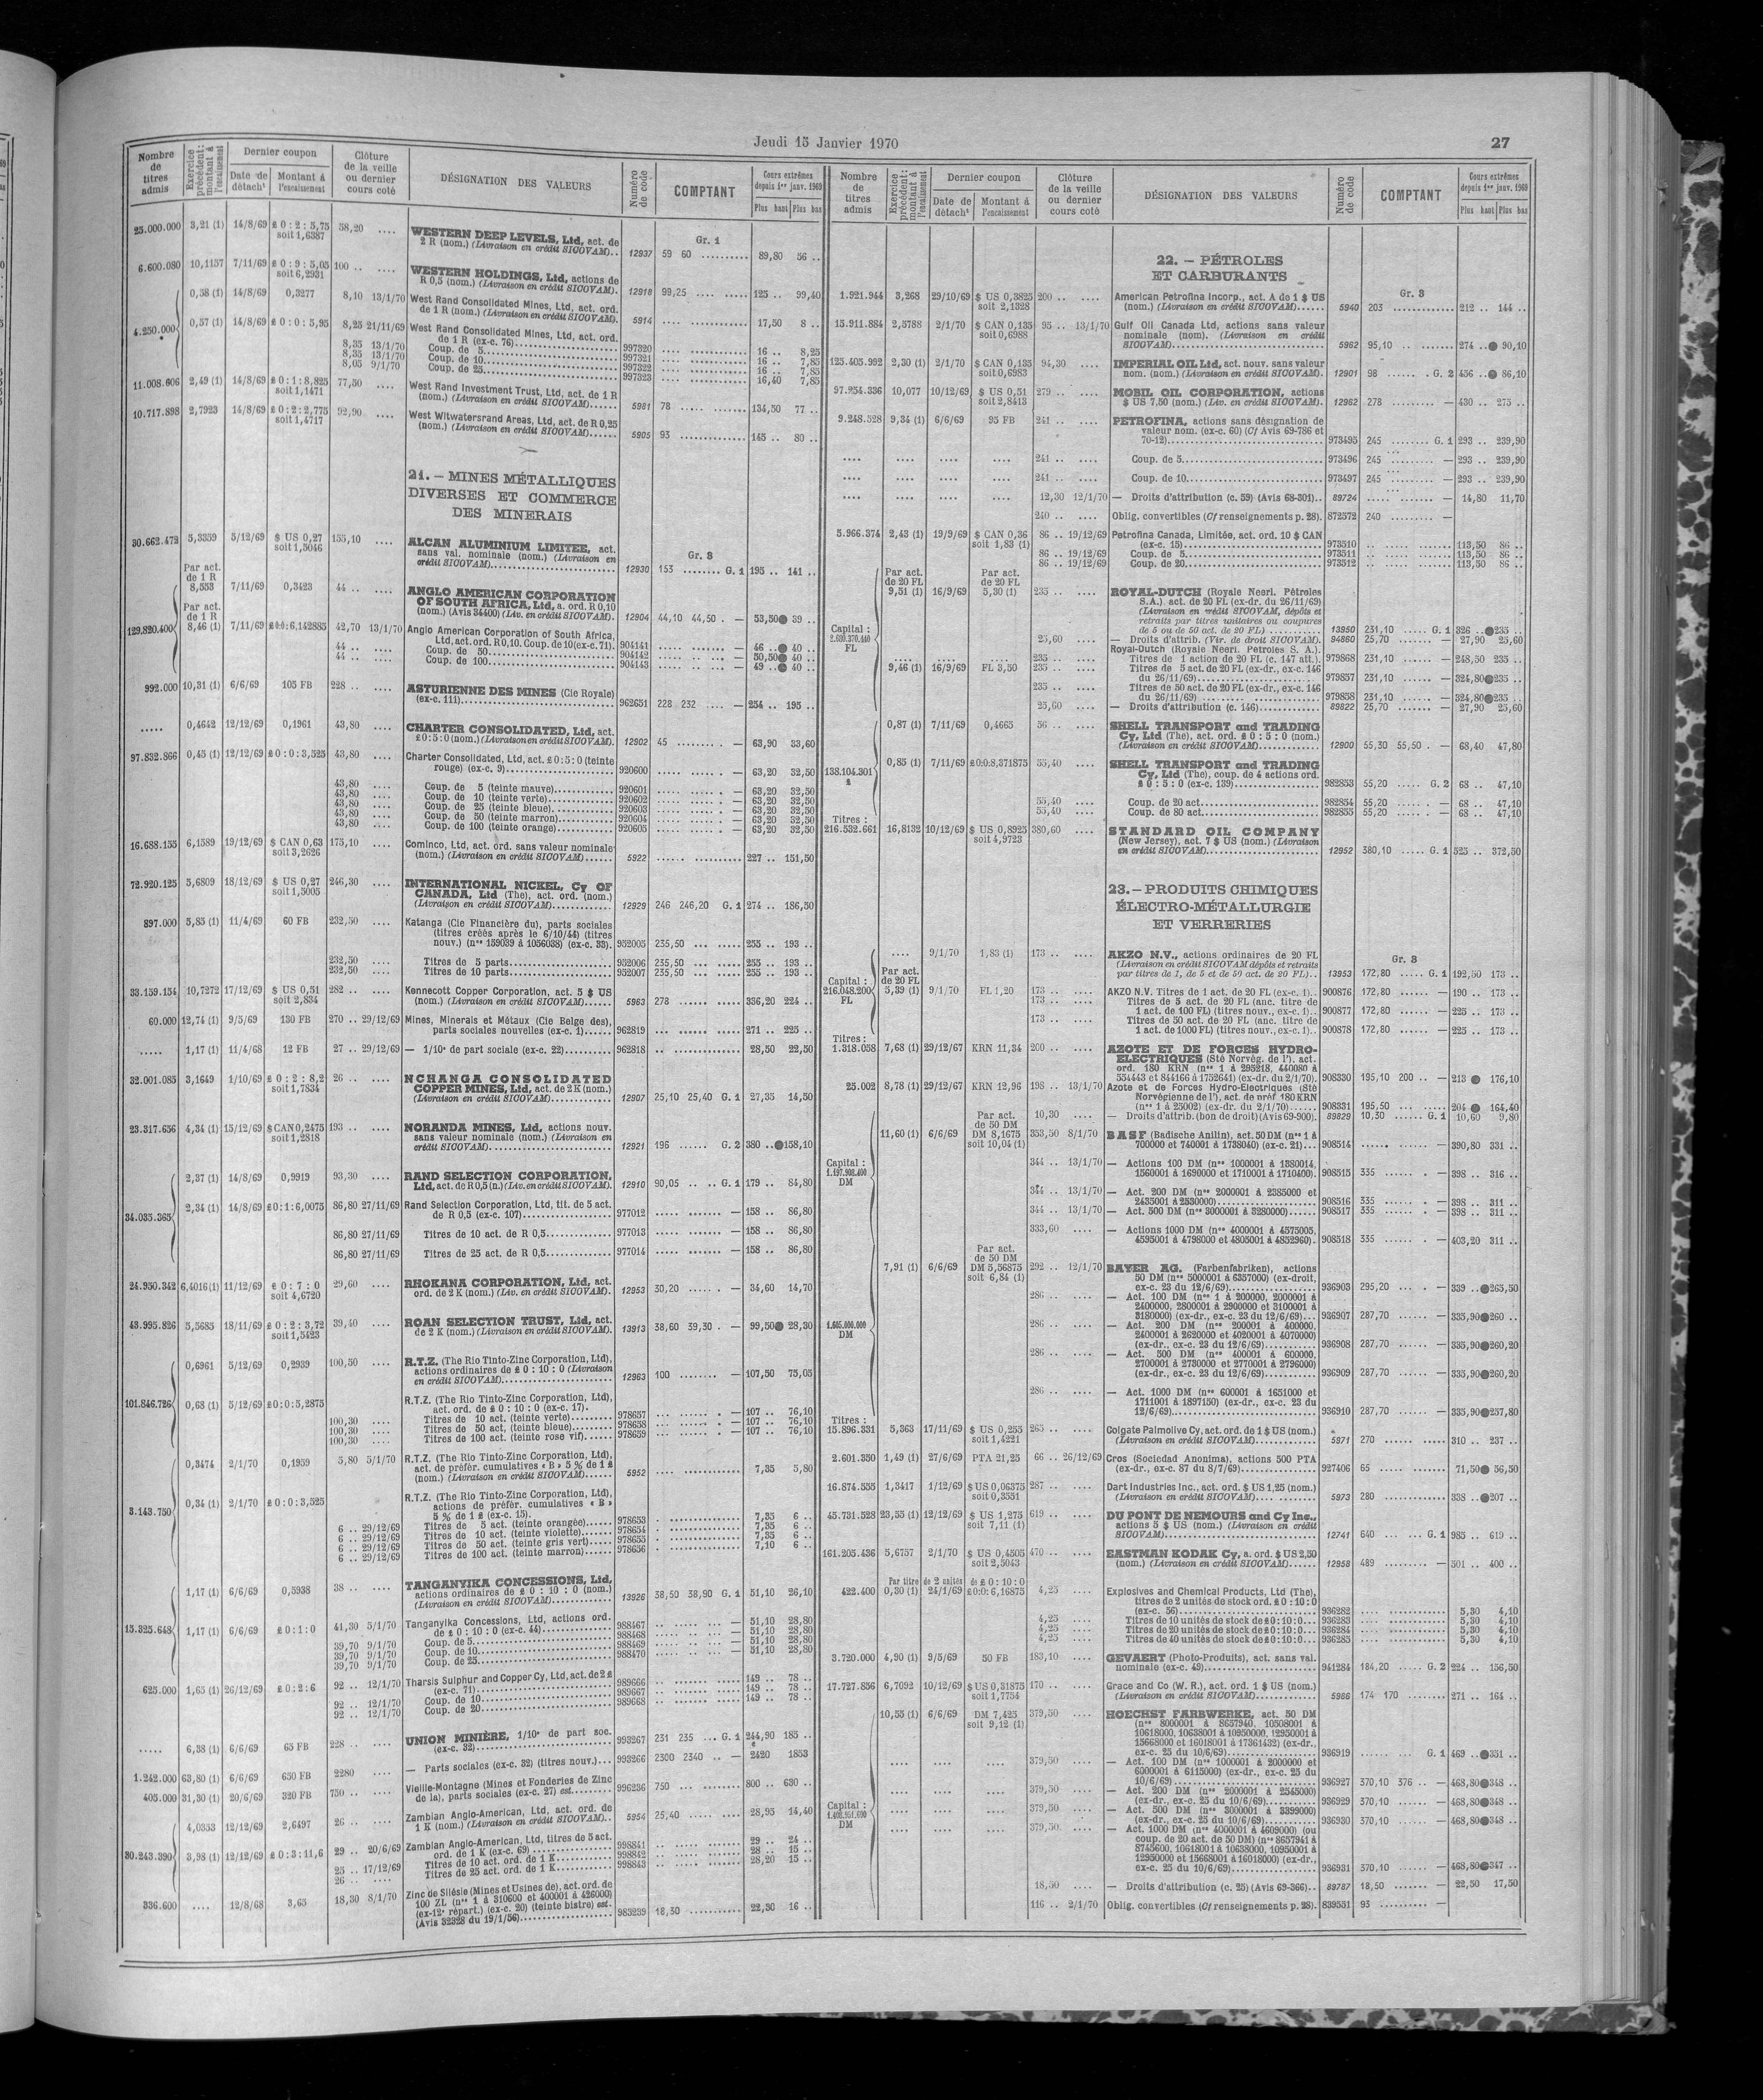 Jeudi 15 Janvier 1970
27
Nombre de titres admis
Exercice précédent: montant à l'encaissement
Dernier coupon
Date de détacht
Montant à l'encaissement
Clôture de la veille ou dernier cours coté
DÉSIGNATION DES VALEURS
Numéro de code
COMPTANT
Cours extrêmes depuis 1er janv. 1969
Plus haut
Plus bas
Gr. 1
25.000.000 3,21 (1) 14/8/69 £ 0 : 2 : 5,75 soit 1,6387 58,20 .... WESTERN DEEP LEVELS, Ltd, act. de 2 R (nom.) (Livraison en crédit SICOVAM).. 12937 59 60 .......... 89,80 56 ..
6.600.080 10,1157 7/11/69 £ 0 : 9 : 5,05 soit 6,2931 100 .. .... WESTERN HOLDINGS, Ltd, actions de R 0,5 (nom.) (Livraison en crédit SICOVAM). 12918 99,25 .... ..... 125 .. 99,40
0,58 (1) 14/8/69 0,3277 8,10 13/1/70 West Rand Consolidated Mines, Ltd, act. ord. de 1 R (nom.) (Livraison en crédit SICOVAM). 5914 .... ............ 17,50 8 ..
4.250.000 0,57 (1) 14/8/69 £ 0 : 0 : 5,95 8,25 21/11/69 West Rand Consolidated Mines, Ltd, act. ord. de 1 R (ex-c. 76) 997320 16 .. 8,25
8,35 13/1/70 Coup. de 5 997321 16 .. 7,85
8,35 13/1/70 Coup. de 10 997322 16 .. 7,85
8,05 9/1/70 Coup. de 25 997323 16,40 7,85
11.008.606 2,49 (1) 14/8/69 £ 0 : 1 : 8,825 soit 1,1471 77,50 .... West Rand Investment Trust, Ltd, act. de 1 R (nom.) (Livraison en crédit SICOVAM)...... 5981 78 ..... ......... 134,50 77 ..
10.717.898 2,7923 14/8/69 £ 0 : 2 : 2,775 soit 1,4717 92,90 .... West Witwatersrand Areas, Ltd, act. de R 0,25 (nom.) (Livraison en crédit SICOVAM)...... 5905 93 .............. 145 .. 80 ..
21. — MINES MÉTALLIQUES
DIVERSES ET COMMERCE
DES MINERAIS
Gr. 8
30.662.472 5,3359 5/12/69 $ US 0,27 soit 1,5046 155,10 .... ALCAN ALUMINIUM LIMITEE, act. sans val. nominale (nom.) (Livraison en crédit SICOVAM) 12930 153 ........ G. 1 195 .. 141 ..
Par act. de 1 R 8,553 7/11/69 0,3423 44 .. .... ANGLO AMERICAN CORPORATION OF SOUTH AFRICA, Ltd, a. ord. R 0,10 (nom.) (Avis 34400) (Liv. en crédit SICOVAM). 12904 44,10 44,50 . — 53,50● 39 ..
129.820.400 Par act. de 1 R 8,46 (1) 7/11/69 £0:0:6,142885 42,70 13/1/70 Anglo American Corporation of South Africa, Ltd, act. ord. R 0,10. Coup. de 10 (ex-c. 71). 904141 — 46 ..● 40 ..
44 .. .... Coup. de 50 904142 — 50,50● 40 ..
44 .. .... Coup. de 100 904143 — 49 ..● 40 ..
992.000 10,31 (1) 6/6/69 105 FB 228 .. .... ASTURIENNE DES MINES (Cie Royale) (ex-c. 111) 962651 228 232 .... — 254 .. 195 ..
..... 0,4642 12/12/69 0,1961 43,80 .... CHARTER CONSOLIDATED, Ltd, act. £ 0 : 5 : 0 (nom.) (Livraison en crédit SICOVAM). 12902 45 ......... . — 63,90 33,60
97.832.866 0,45 (1) 12/12/69 £ 0 : 0 : 3,525 43,80 .... Charter Consolidated, Ltd, act. £ 0 : 5 : 0 (teinte rouge) (ex-c. 9) 920600 — 63,20 32,50
43,80 .... Coup. de 5 (teinte mauve) 920601 — 63,20 32,50
43,80 .... Coup. de 10 (teinte verte) 920602 — 63,20 32,50
43,80 .... Coup. de 25 (teinte bleue) 920603 — 63,20 32,50
43,80 .... Coup. de 50 (teinte marron) 920604 — 63,20 32,50
43,80 .... Coup. de 100 (teinte orange) 920605 — 63,20 32,50
16.688.155 6,1589 19/12/69 $ CAN 0,63 soit 3,2626 175,10 .... Cominco, Ltd, act. ord. sans valeur nominale (nom.) (Livraison en crédit SICOVAM)...... 5922 227 .. 151,50
72.920.125 5,6809 18/12/69 $ US 0,27 soit 1,5005 246,30 .... INTERNATIONAL NICKEL, Cy OF CANADA, Ltd (The), act. ord. (nom.) (Livraison en crédit SICOVAM) 12929 246 246,20 G. 1 274 .. 186,50
897.000 5,85 (1) 11/4/69 60 FB 232,50 .... Katanga (Cie Financière du), parts sociales (titres créés après le 6/10/44) (titres nouv.) (nos 159039 à 1056038) (ex-c. 33). 952005 235,50 ... ..... 255 .. 193 ..
232,50 .... Titres de 5 parts 952006 235,50 ... ..... 255 .. 193 ..
232,50 .... Titres de 10 parts 952007 235,50 ... ..... 255 .. 193 ..
33.159.154 10,7272 17/12/69 $ US 0,51 soit 2,834 282 .. .... Kennecott Copper Corporation, act. 5 $ US (nom.) (Livraison en crédit SICOVAM)...... 5963 278 ...... ...... 336,20 224 ..
60.000 12,74 (1) 9/5/69 130 FB 270 .. 29/12/69 Mines, Minerais et Métaux (Cie Belge des), parts sociales nouvelles (ex-c. 1)...... 962819 271 .. 225 ..
..... 1,17 (1) 11/4/68 12 FB 27 .. 29/12/69 — 1/10e de part sociale (ex-c. 22).......... 962818 28,50 22,50
32.001.085 3,1649 1/10/69 £ 0 : 2 : 8,2 soit 1,7834 26 .. .... NCHANGA CONSOLIDATED COPPER MINES, Ltd, act. de 2 K (nom.) (Livraison en crédit SICOVAM) 12907 25,10 25,40 G. 1 27,35 14,50
23.317.656 4,34 (1) 15/12/69 $ CAN 0,2475 soit 1,2818 193 .. .... NORANDA MINES, Ltd, actions nouv. sans valeur nominale (nom.) (Livraison en crédit SICOVAM) 12921 196 ...... G. 2 380 ..●158,10
2,37 (1) 14/8/69 0,9919 93,30 .... RAND SELECTION CORPORATION, Ltd, act. de R 0,5 (n.) (Liv. en crédit SICOVAM). 12910 90,05 .. .. G. 1 179 .. 84,80
34.035.365 2,34 (1) 14/8/69 £0:1:6,0075 86,80 27/11/69 Rand Selection Corporation, Ltd, tit. de 5 act. de R 0,5 (ex-c. 107) 977012 — 158 .. 86,80
86,80 27/11/69 Titres de 10 act. de R 0,5 977013 — 158 .. 86,80
86,80 27/11/69 Titres de 25 act. de R 0,5 977014 — 158 .. 86,80
24.950.342 6,4016 (1) 11/12/69 £ 0 : 7 : 0 soit 4,6720 29,60 .... RHOKANA CORPORATION, Ltd, act. ord. de 2 K (nom.) (Liv. en crédit SICOVAM). 12953 30,20 ..... ... — 34,60 14,70
43.995.826 5,5685 18/11/69 £ 0 : 2 : 3,72 soit 1,5423 39,40 .... ROAN SELECTION TRUST, Ltd, act. de 2 K (nom.) (Livraison en crédit SICOVAM). 13913 38,60 39,30 . — 99,50● 28,30
0,6961 5/12/69 0,2939 100,50 .... R.T.Z. (The Rio Tinto-Zinc Corporation, Ltd), actions ordinaires de £ 0 : 10 : 0 (Livraison en crédit SICOVAM) 12963 100 ........ — 107,50 75,05
101.846.726 0,68 (1) 5/12/69 £0:0:5,2875 R.T.Z. (The Rio Tinto-Zinc Corporation, Ltd), act. ord. de £ 0 : 10 : 0 (ex-c. 17).
100,30 .... Titres de 10 act. (teinte verte) 978657 — 107 .. 76,10
100,30 .... Titres de 50 act. (teinte bleue) 978658 — 107 .. 76,10
100,30 .... Titres de 100 act. (teinte rose vif) 978659 — 107 .. 76,10
0,3474 2/1/70 0,1959 5,80 5/1/70 R.T.Z. (The Rio Tinto-Zinc Corporation, Ltd), act. de préfér. cumulatives « B » 5 % de 1 £ (nom.) (Livraison en crédit SICOVAM)...... 5952 7,35 5,80
3.143.750 0,34 (1) 2/1/70 £ 0 : 0 : 3,525 R.T.Z. (The Rio Tinto-Zinc Corporation, Ltd), actions de préfér. cumulatives « B » 5 % de 1 £ (ex-c. 15).
6 .. 29/12/69 Titres de 5 act. (teinte orangée) 978653 7,35 6 ..
6 .. 29/12/69 Titres de 10 act. (teinte violette) 978654 7,35 6 ..
6 .. 29/12/69 Titres de 50 act. (teinte gris vert) 978655 7,35 6 ..
6 .. 29/12/69 Titres de 100 act. (teinte marron) 978656 7,10 6 ..
1,17 (1) 6/6/69 0,5938 38 .. .... TANGANYIKA CONCESSIONS, Ltd, actions ordinaires de £ 0 : 10 : 0 (nom.) (Livraison en crédit SICOVAM) 13926 38,50 38,90 G. 1 51,10 26,10
15.325.648 1,17 (1) 6/6/69 £ 0 : 1 : 0 41,30 5/1/70 Tanganyika Concessions, Ltd, actions ord. de £ 0 : 10 : 0 (ex-c. 44) 988467 — 51,10 28,80
39,70 9/1/70 Coup. de 5 988468 — 51,10 28,80
39,70 9/1/70 Coup. de 10 988469 — 51,10 28,80
39,70 9/1/70 Coup. de 25 988470 — 51,10 28,80
625.000 1,65 (1) 26/12/69 £ 0 : 2 : 6 92 .. 12/1/70 Tharsis Sulphur and Copper Cy, Ltd, act. de 2 £ (ex-c. 71) 989666 149 .. 78 ..
92 .. 12/1/70 Coup. de 10 989667 149 .. 78 ..
92 .. 12/1/70 Coup. de 20 989668 149 .. 78 ..
..... 6,38 (1) 6/6/69 65 FB 228 .. .... UNION MINIÈRE, 1/10e de part soc. (ex-c. 32) 993267 231 235 ... G. 1 244,90 185 ..
1.242.000 63,80 (1) 6/6/69 650 FB 2280 — Parts sociales (ex-c. 32) (titres nouv.)... 993266 2300 2340 .. — 2420 1853
405.000 31,30 (1) 20/6/69 320 FB 750 .. .... Vieille-Montagne (Mines et Fonderies de Zinc de la), parts sociales (ex-c. 27) est. 996236 750 ... ....... 800 .. 630 ..
4,0353 12/12/69 2,6497 26 .. .... Zambian Anglo-American, Ltd, act. ord. de 1 K (nom.) (Livraison en crédit SICOVAM).. 5954 25,40 ... ....... 28,95 14,40
30.243.390 3,98 (1) 12/12/69 £ 0 : 3 : 11,6 29 .. 20/6/69 Zambian Anglo-American, Ltd, titres de 5 act. ord. de 1 K (ex-c. 69) 998841 29 .. 24 ..
25 .. 17/12/69 Titres de 10 act. ord. de 1 K 998842 28 .. 15 ..
26 .. .... Titres de 25 act. ord. de 1 K 998843 28,20 15 ..
336.600 .... 12/8/68 3,65 18,30 8/1/70 Zinc de Silésie (Mines et Usines de), act. ord. de 100 ZL (nos 1 à 310600 et 400001 à 426000) (ex-12e répart.) (ex-c. 20) (teinte bistre) est. (Avis 32328 du 19/1/56) 983239 18,30 .......... 22,30 16 ..
Nombre de titres admis
Exercice précédent: montant à l'encaissement
Dernier coupon
Date de détacht
Montant à l'encaissement
Clôture de la veille ou dernier cours coté
DÉSIGNATION DES VALEURS
Numéro de code
COMPTANT
Cours extrêmes depuis 1er janv. 1969
Plus haut
Plus bas
22. — PÉTROLES
ET CARBURANTS
Gr. 8
1.921.944 3,268 29/10/69 $ US 0,3825 soit 2,1328 200 .. .... American Petrofina Incorp., act. A de 1 $ US (nom.) (Livraison en crédit SICOVAM)...... 5940 203 ............. 212 .. 144 ..
15.911.884 2,5788 2/1/70 $ CAN 0,135 soit 0,6988 95 .. 13/1/70 Gulf Oil Canada Ltd, actions sans valeur nominale (nom). (Livraison en crédit SICOVAM) 5962 95,10 .. ........ 274 ..● 90,10
125.405.992 2,30 (1) 2/1/70 $ CAN 0,135 soit 0,6983 94,30 .... IMPERIAL OIL Ltd, act. nouv. sans valeur nom. (nom.) (Livraison en crédit SICOVAM). 12901 98 ....... . G. 2 456 ..● 86,10
97.254.336 10,077 10/12/69 $ US 0,51 soit 2,8413 279 .. .... MOBIL OIL CORPORATION, actions $ US 7,50 (nom.) (Liv. en crédit SICOVAM). 12962 278 ......... — 430 .. 275 ..
9.248.528 9,34 (1) 6/6/69 95 FB 241 .. .... PETROFINA, actions sans désignation de valeur nom. (ex-c. 60) (Cf Avis 69-786 et 70-12) 973495 245 ........ G. 1 293 .. 239,90
.... .... .... .... 241 .. .... Coup. de 5 973496 245 ......... — 293 .. 239,90
.... .... .... .... 241 .. .... Coup. de 10 973497 245 ......... — 293 .. 239,90
.... .... .... .... 12,30 12/1/70 — Droits d'attribution (c. 59) (Avis 68-301).. 89724 — 14,80 11,70
240 .. .... Oblig. convertibles (Cf renseignements p. 28). 872572 240 ......... —
5.966.374 2,43 (1) 19/9/69 $ CAN 0,36 soit 1,83 (1) 86 .. 19/12/69 Petrofina Canada, Limitée, act. ord. 10 $ CAN (ex-c. 15) 973510 113,50 86 ..
86 .. 19/12/69 Coup. de 5 973511 113,50 86 ..
86 .. 19/12/69 Coup. de 20 973512 113,50 86 ..
Par act. de 20 FL 9,51 (1) 16/9/69 Par act. de 20 FL 5,30 (1) 235 .. .... ROYAL-DUTCH (Royale Neerl. Pétroles S.A.). act. de 20 FL (ex-dr. du 26/11/69) (Livraison en crédit SICOVAM, dépôts et retraits par titres unitaires ou coupures de 5 ou de 50 act. de 20 FL) 13950 231,10 ..... G. 1 326 ..●235 ..
Capital : 2.680.370.440 FL 25,60 .... — Droits d'attrib. (Vir. de droit SICOVAM). 94860 25,70 ...... — 27,90 25,60
Royal-Dutch (Royale Neerl. Petroles S. A.).
.... .... .... 235 .. .... Titres de 1 action de 20 FL (c. 147 att.). 979868 231,10 ...... — 248,50 235 ..
9,46 (1) 16/9/69 FL 3,50 235 .. .... Titres de 5 act. de 20 FL (ex-dr., ex-c. 146 du 26/11/69) 979857 231,10 ...... — 324,80●235 ..
235 .. .... Titres de 50 act. de 20 FL (ex-dr., ex-c. 146 du 26/11/69) 979858 231,10 ...... — 324,80●235 ..
25,60 .... — Droits d'attribution (c. 146) 89822 25,70 ...... — 27,90 25,60
0,87 (1) 7/11/69 0,4665 56 .. .... SHELL TRANSPORT and TRADING Cy, Ltd (The), act. ord. £ 0 : 5 : 0 (nom.) (Livraison en crédit SICOVAM) 12900 55,30 55,50 . — 68,40 47,80
138.104.301 £ 0,85 (1) 7/11/69 £0:0:8,371875 55,40 .... SHELL TRANSPORT and TRADING Cy, Ltd (The), coup. de 4 actions ord. £ 0 : 5 : 0 (ex-c. 139) 982853 55,20 ..... G. 2 68 .. 47,10
55,40 .... Coup. de 20 act. 982854 55,20 ..... . — 68 .. 47,10
55,40 .... Coup. de 80 act. 982855 55,20 ..... . — 68 .. 47,10
Titres : 216.532.661 16,8132 10/12/69 $ US 0,8925 soit 4,9723 380,60 .... STANDARD OIL COMPANY (New Jersey), act. 7 $ US (nom.) (Livraison en crédit SICOVAM) 12952 380,10 ..... G. 1 525 .. 372,50
23. — PRODUITS CHIMIQUES
ÉLECTRO-MÉTALLURGIE
ET VERRERIES
Gr. 8
.... 9/1/70 1,83 (1) 173 .. .... AKZO N.V., actions ordinaires de 20 FL (Livraison en crédit SICOVAM dépôts et retraits par titres de 1, de 5 et de 50 act. de 20 FL).. 13953 172,80 ..... G. 1 192,50 173 ..
Capital : 216.048.200 FL Par act. de 20 FL 5,39 (1) 9/1/70 FL 1,20 173 .. .... AKZO N.V. Titres de 1 act. de 20 FL (ex-c. 1).. 900876 172,80 ...... — 190 .. 173 ..
173 .. .... Titres de 5 act. de 20 FL (anc. titre de 1 act. de 100 FL) (titres nouv., ex-c. 1).. 900877 172,80 ...... — 225 .. 173 ..
173 .. .... Titres de 50 act. de 20 FL (anc. titre de 1 act. de 1000 FL) (titres nouv., ex-c. 1).. 900878 172,80 ...... — 225 .. 173 ..
Titres : 1.318.058 7,68 (1) 29/12/67 KRN 11,34 200 .. .... AZOTE ET DE FORCES HYDRO-ELECTRIQUES (Sté Norvég. de l'). act. ord. 180 KRN (nos 1 à 295218, 440080 à 554443 et 844166 à 1752641) (ex-dr. du 2/1/70). 908330 195,10 200 .. — 213 ● 176,10
25.002 8,78 (1) 29/12/67 KRN 12,96 198 .. 13/1/70 Azote et de Forces Hydro-Electriques (Sté Norvégienne de l'), act. de préf 180 KRN (nos 1 à 25002) (ex-dr. du 2/1/70) 908331 195,50 ... ..... — 204 ● 164,40
10,30 .... — Droits d'attrib. (bon de droit) (Avis 69-900). 89829 10,30 ...... G. 1 10,60 9,80
11,60 (1) 6/6/69 Par act. de 50 DM DM 8,1675 soit 10,04 (1) 353,50 8/1/70 BASF (Badische Anilin), act. 50 DM (nos 1 à 700000 et 740001 à 1738040) (ex-c. 21)... 908514 — 390,80 331 ..
Capital : 1.197.908.400 DM 344 .. 13/1/70 — Actions 100 DM (nos 1000001 à 1380014, 1560001 à 1690000 et 1710001 à 1710400). 908515 335 ...... . — 398 .. 316 ..
344 .. 13/1/70 — Act. 200 DM (nos 2000001 à 2385000 et 2435001 à 2530000) 908516 335 ...... . — 398 .. 311 ..
344 .. 13/1/70 — Act. 500 DM (nos 3000001 à 3280000) 908517 335 ...... . — 398 .. 311 ..
333,60 .... — Actions 1000 DM (nos 4000001 à 4575005, 4595001 à 4798000 et 4805001 à 4852960). 908518 335 ...... . — 403,20 311 ..
7,91 (1) 6/6/69 Par act. de 50 DM DM 5,56875 soit 6,84 (1) 292 .. 12/1/70 BAYER AG. (Farbenfabriken), actions 50 DM (nos 5000001 à 6357000) (ex-droit, ex-c. 23 du 12/6/69) 936903 295,20 ... ... — 339 ..●265,50
286 .. .... — Act. 100 DM (nos 1 à 200000, 2000001 à 2400000, 2800001 à 2900000 et 3100001 à 3180000) (ex-dr., ex-c. 23 du 12/6/69)... 936907 287,70 ... ... — 335,90●260 ..
1.605.000.000 DM 286 .. .... — Act. 200 DM (nos 200001 à 400000, 2400001 à 2620000 et 4020001 à 4070000) (ex-dr., ex-c. 23 du 12/6/69) 936908 287,70 ... ... — 335,90●260,20
286 .. .... — Act. 500 DM (nos 400001 à 600000, 2700001 à 2730000 et 2770001 à 2796000) (ex-dr., ex-c. 23 du 12/6/69) 936909 287,70 ... ... — 335,90●260,20
286 .. .... — Act. 1000 DM (nos 600001 à 1651000 et 1711001 à 1897150) (ex-dr., ex-c. 23 du 12/6/69) 936910 287,70 ... ... — 335,90●257,80
Titres : 15.896.331 5,363 17/11/69 $ US 0,255 soit 1,4221 265 .. .... Colgate Palmolive Cy, act. ord. de 1 $ US (nom.) (Livraison en crédit SICOVAM) 5971 270 ..... ...... 310 .. 237 ..
2.601.350 1,49 (1) 27/6/69 PTA 21,25 66 .. 26/12/69 Cros (Sociedad Anonima), actions 500 PTA (ex-dr., ex-c. 87 du 8/7/69) 927406 65 ..... ....... 71,50● 56,50
16.874.555 1,3417 1/12/69 $ US 0,06375 soit 0,3551 287 .. .... Dart Industries Inc., act. ord. $ US 1,25 (nom.) (Livraison en crédit SICOVAM) 5973 280 ............ 338 ..●207 ..
45.731.528 23,55 (1) 12/12/69 $ US 1,275 soit 7,11 (1) 619 .. .... DU PONT DE NEMOURS and Cy Inc., actions 5 $ US (nom.) (Livraison en crédit SICOVAM) 12741 640 ..... ... G. 1 985 .. 619 ..
161.205.436 5,6757 2/1/70 $ US 0,4505 soit 2,5043 470 .. .... EASTMAN KODAK Cy, a. ord. $ US 2,50 (nom.) (Livraison en crédit SICOVAM)...... 12958 489 ......... — 501 .. 400 ..
422.400 Par titre de 2 unités de £ 0 : 10 : 0 0,30 (1) 24/1/69 £0:0:6,16875 4,25 .... Explosives and Chemical Products, Ltd (The), titres de 2 unités de stock ord. £ 0 : 10 : 0 (ex-c. 56) 936282 5,30 4,10
4,25 .... Titres de 10 unités de stock de £ 0 : 10 : 0... 936283 5,30 4,10
4,25 .... Titres de 20 unités de stock de £ 0 : 10 : 0... 936284 5,30 4,10
4,25 .... Titres de 40 unités de stock de £ 0 : 10 : 0... 936285 5,30 4,10
3.720.000 4,90 (1) 9/5/69 50 FB 183,10 .... GEVAERT (Photo-Produits), act. sans val. nominale (ex-c. 49) 941284 184,20 ..... G. 2 224 .. 156,50
17.727.856 6,7092 10/12/69 $ US 0,31875 soit 1,7754 170 .. .... Grace and Co (W. R.), act. ord. 1 $ US (nom.) (Livraison en crédit SICOVAM) 5966 174 170 ........ 271 .. 164 ..
10,55 (1) 6/6/69 DM 7,425 soit 9,12 (1) 379,50 .... HOECHST FARBWERKE, act. 50 DM (nos 8000001 à 8657940, 10508001 à 10618000, 10638001 à 10950000, 12950001 à 15668000 et 16018001 à 17361432) (ex-dr., ex-c. 25 du 10/6/69) 936919 ...... G. 1 469 ..●351 ..
.... .... .... 379,50 .... — Act. 100 DM (nos 1000001 à 2000000 et 6000001 à 6115000) (ex-dr., ex-c. 25 du 10/6/69) 936927 370,10 376 .. — 468,80●348 ..
.... .... .... 379,50 .... — Act. 200 DM (nos 2000001 à 2545000) (ex-dr., ex-c. 25 du 10/6/69) 936929 370,10 ... ... — 468,80●348 ..
Capital : 1.408.951.600 DM .... .... .... 379,50 .... — Act. 500 DM (nos 3000001 à 3399000) (ex-dr., ex-c. 25 du 10/6/69) 936930 370,10 ... ... — 468,80●348 ..
.... .... .... 379,50 .... — Act. 1000 DM (nos 4000001 à 4609000) (ou coup. de 20 act. de 50 DM) (nos 8657941 à 8745600, 10618001 à 10638000, 10950001 à 12950000 et 15668001 à 16018000) (ex-dr., ex-c. 25 du 10/6/69) 936931 370,10 ...... — 468,80●347 ..
18,50 .... — Droits d'attribution (c. 25) (Avis 69-366).. 89787 18,50 ...... . — 22,50 17,50
116 .. 2/1/70 Oblig. convertibles (Cf renseignements p. 28). 839551 93 .......... —